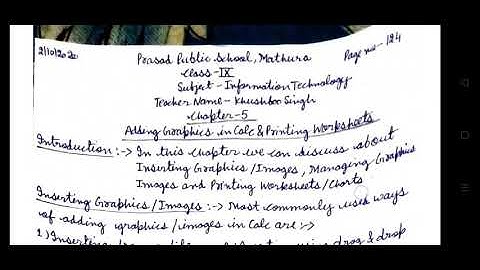 2/10/2020
Prasad Public School, Mathura
Page no - 124
Class - IX
Subject - Information Technology
Teacher Name - Khushboo Singh
Chapter-5
Adding Graphics in Calc & Printing Worksheets
Introduction:-> In this chapter we can discuss about
Inserting Graphics/Images, Managing Graphics
Images and Printing Worksheets/Charts
Inserting Graphics/Images:-> Most commonly used ways
of adding graphics/images in Calc are :->
1) Inserting drag & drop